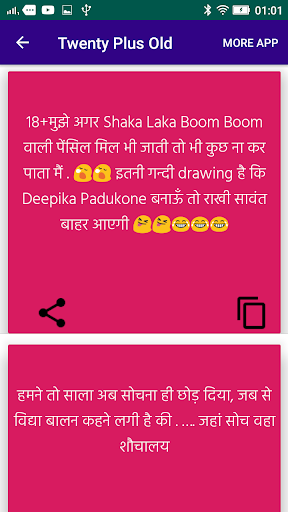 01:01
Twenty Plus Old
MORE APP
18+मुझे अगर Shaka Laka Boom Boom
वाली पेंसिल मिल भी जाती तो भी कुछ ना कर
पाता मैं . 😭😭 इतनी गन्दी drawing है कि
Deepika Padukone बनाऊँ तो राखी सावंत
बाहर आएगी 😝😝😂😂
हमने तो साला अब सोचना ही छोड़ दिया, जब से
विद्या बालन कहने लगी है की . .... जहां सोच वहा
शौचालय